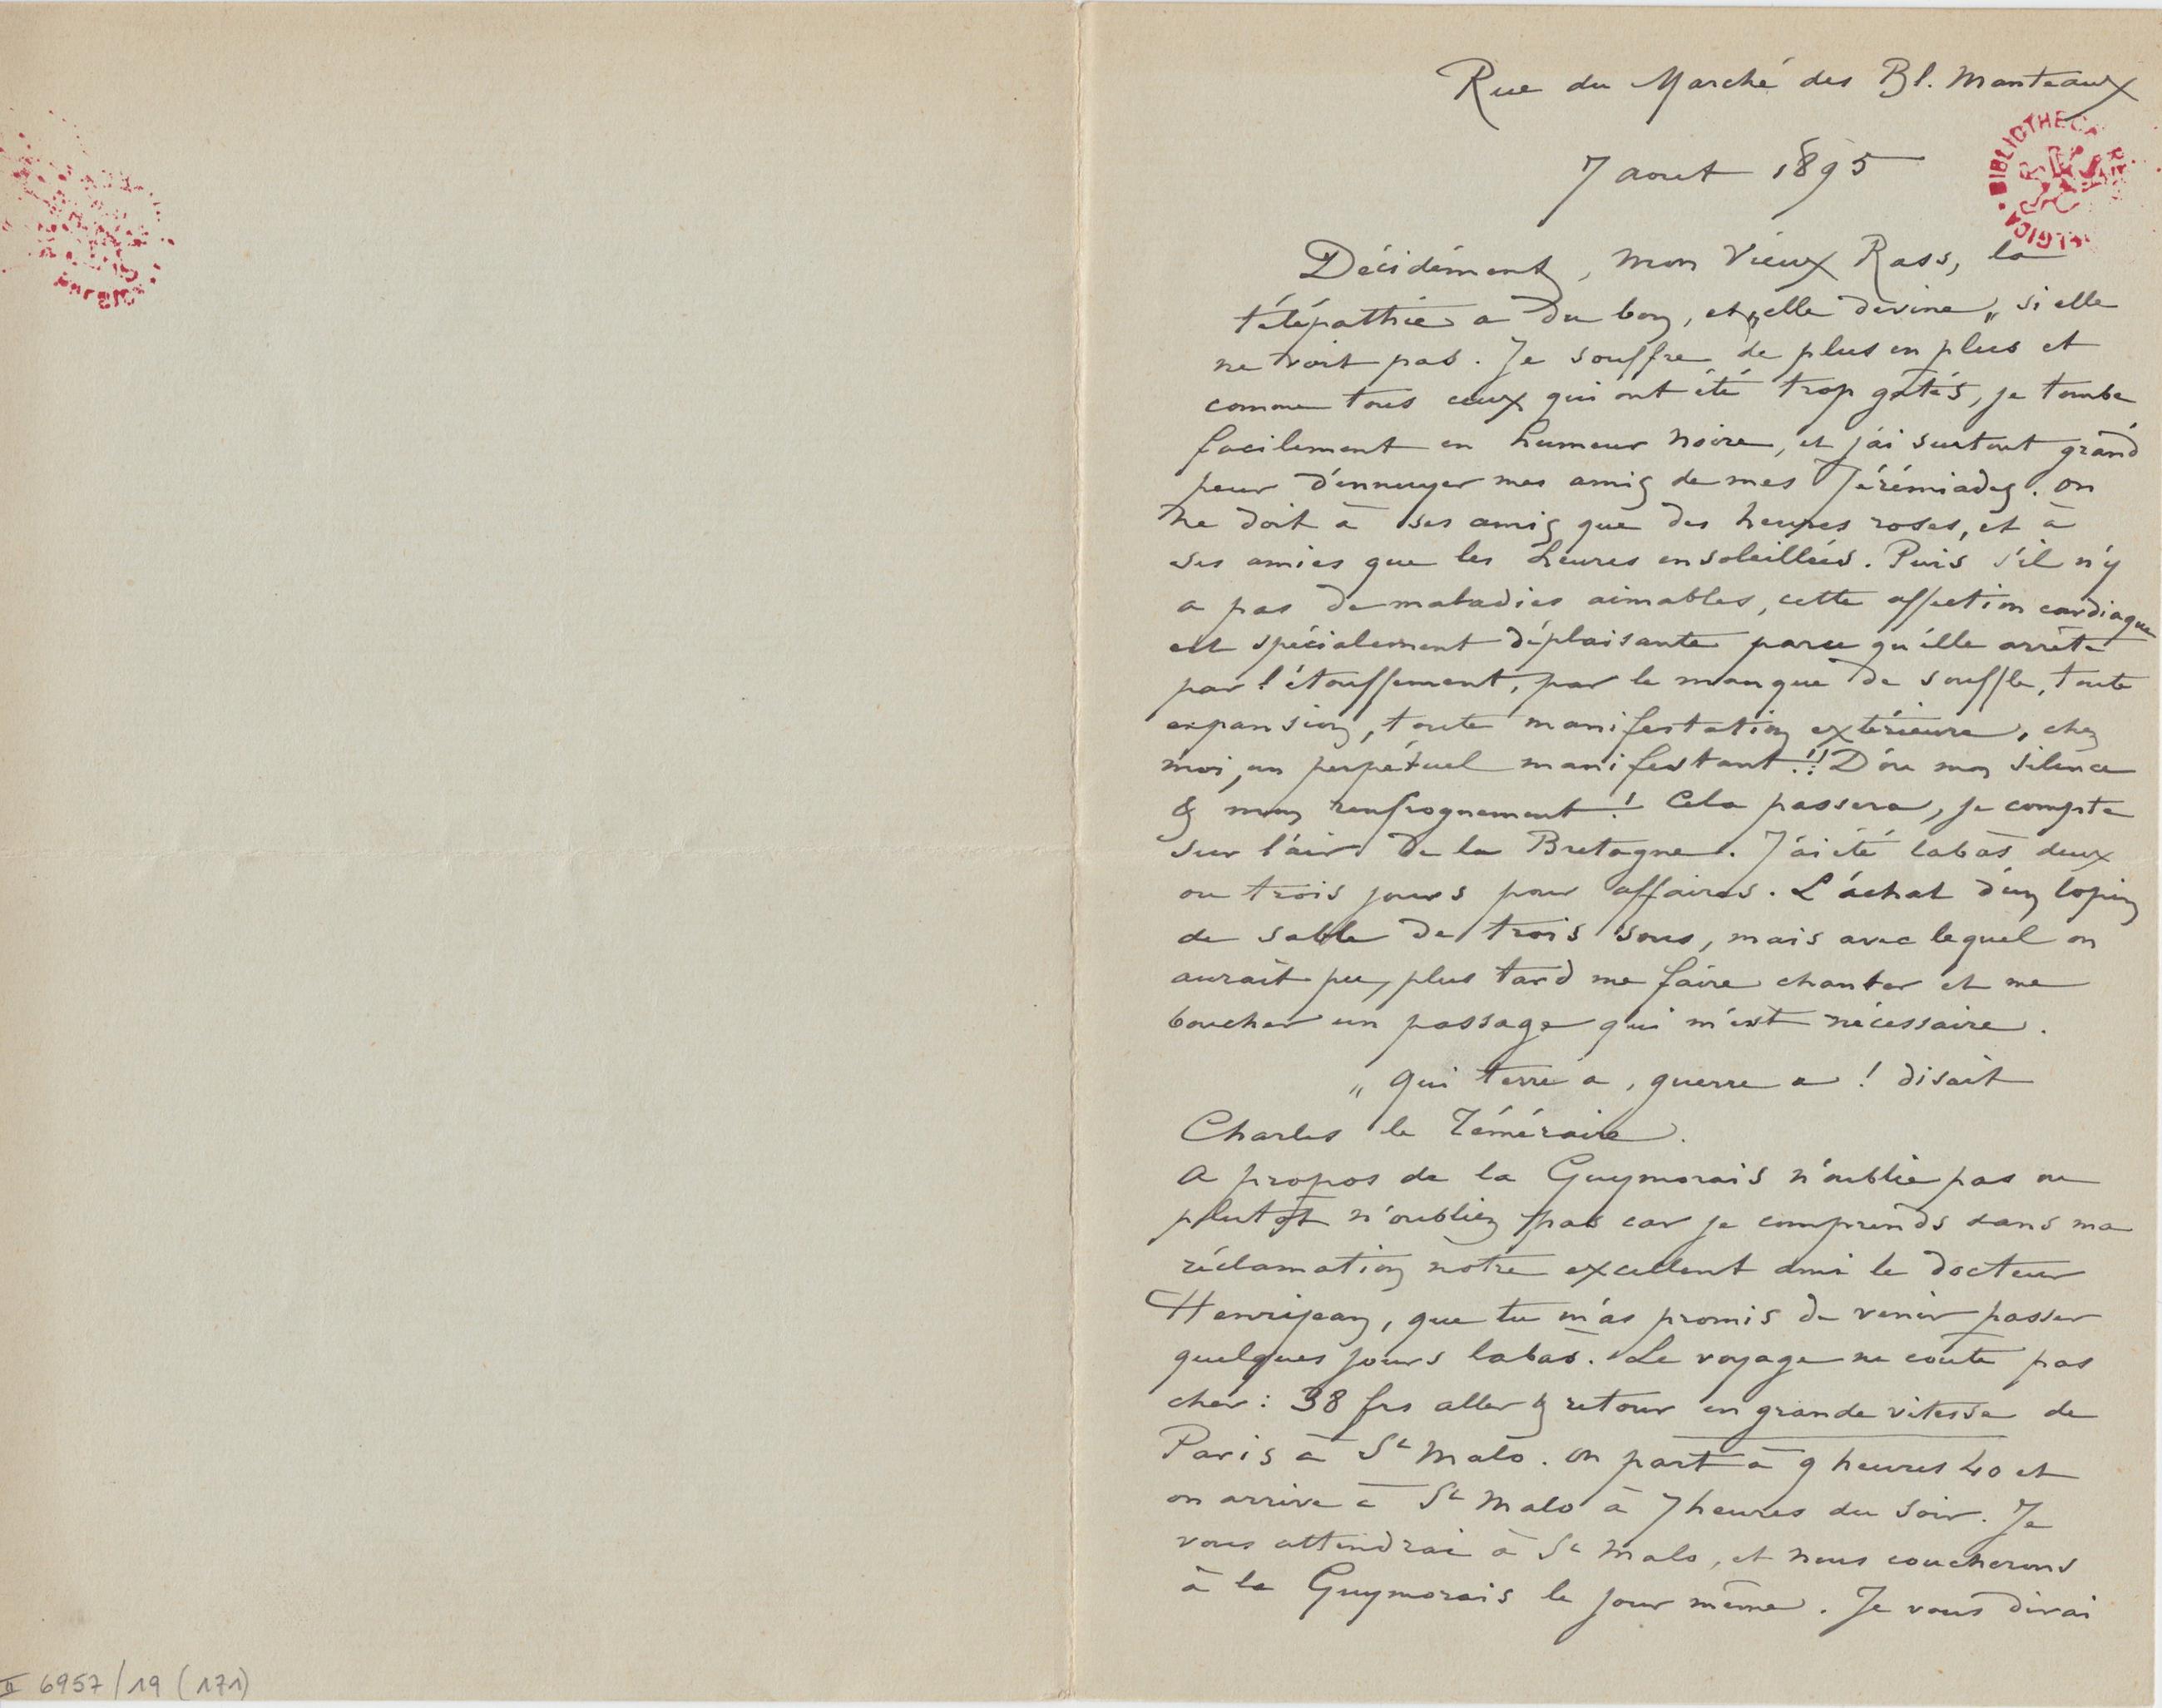 Rue du Marché des Bl. Manteaux
7 aout 1895
Décidément, mon Vieux Rass, la
télépathie a du bon, et „elle devine„ si elle
ne voit pas. Je souffre de plus en plus et
comme tous ceux qui ont été trop gatés, je tombe
facilement en humeur noire, et j'ai surtout grand
peur d'ennuyer mes amis de mes Jérémiades. on
ne doit à ses amis que des heures roses, et à
ses amies que les heures ensoleillées. Puis s'il n'y
a pas de maladies aimables, cette affection cardiaque
est spécialement déplaisante parce qu'elle arrète
par l'étouffement, par le manque de souffle, toute
expansion, toute manifestation extérieure, chez
moi, un perpétuel manifestant!!! D'ou mon silence
& mon renfrognement! Cela passera, je compte
sur l'air de la Bretagne. J'ai été labàs deux
ou trois jours pour affaires. L'achat d'un lopin
de sable de trois sous, mais avec lequel on
aurait pu, plus tard me faire chanter et me
boucher un passage qui m'est nécessaire.
„ Qui terre a, guerre a! disait
Charles le Téméraire.
A propos de la Guymorais n'oublie pas ou
plutot n'oubliez pas car je comprends dans ma
réclamation notre excellent ami le docteur
Henrijean, que tu m'as promis de venir passer
quelques jours labas. Le voyage ne coute pas
cher: 38 frs aller & retour en grande vitesse de
Paris à St Malo. on part à 9 heures 40 et
on arrive à St Malo à 7 heures du soir. Je
vous attendrai à St Malo, et nous coucherons
à la Guymorais le jour même. Je vous dirai
BIBLIOTHECA
II 6957/19 (171)